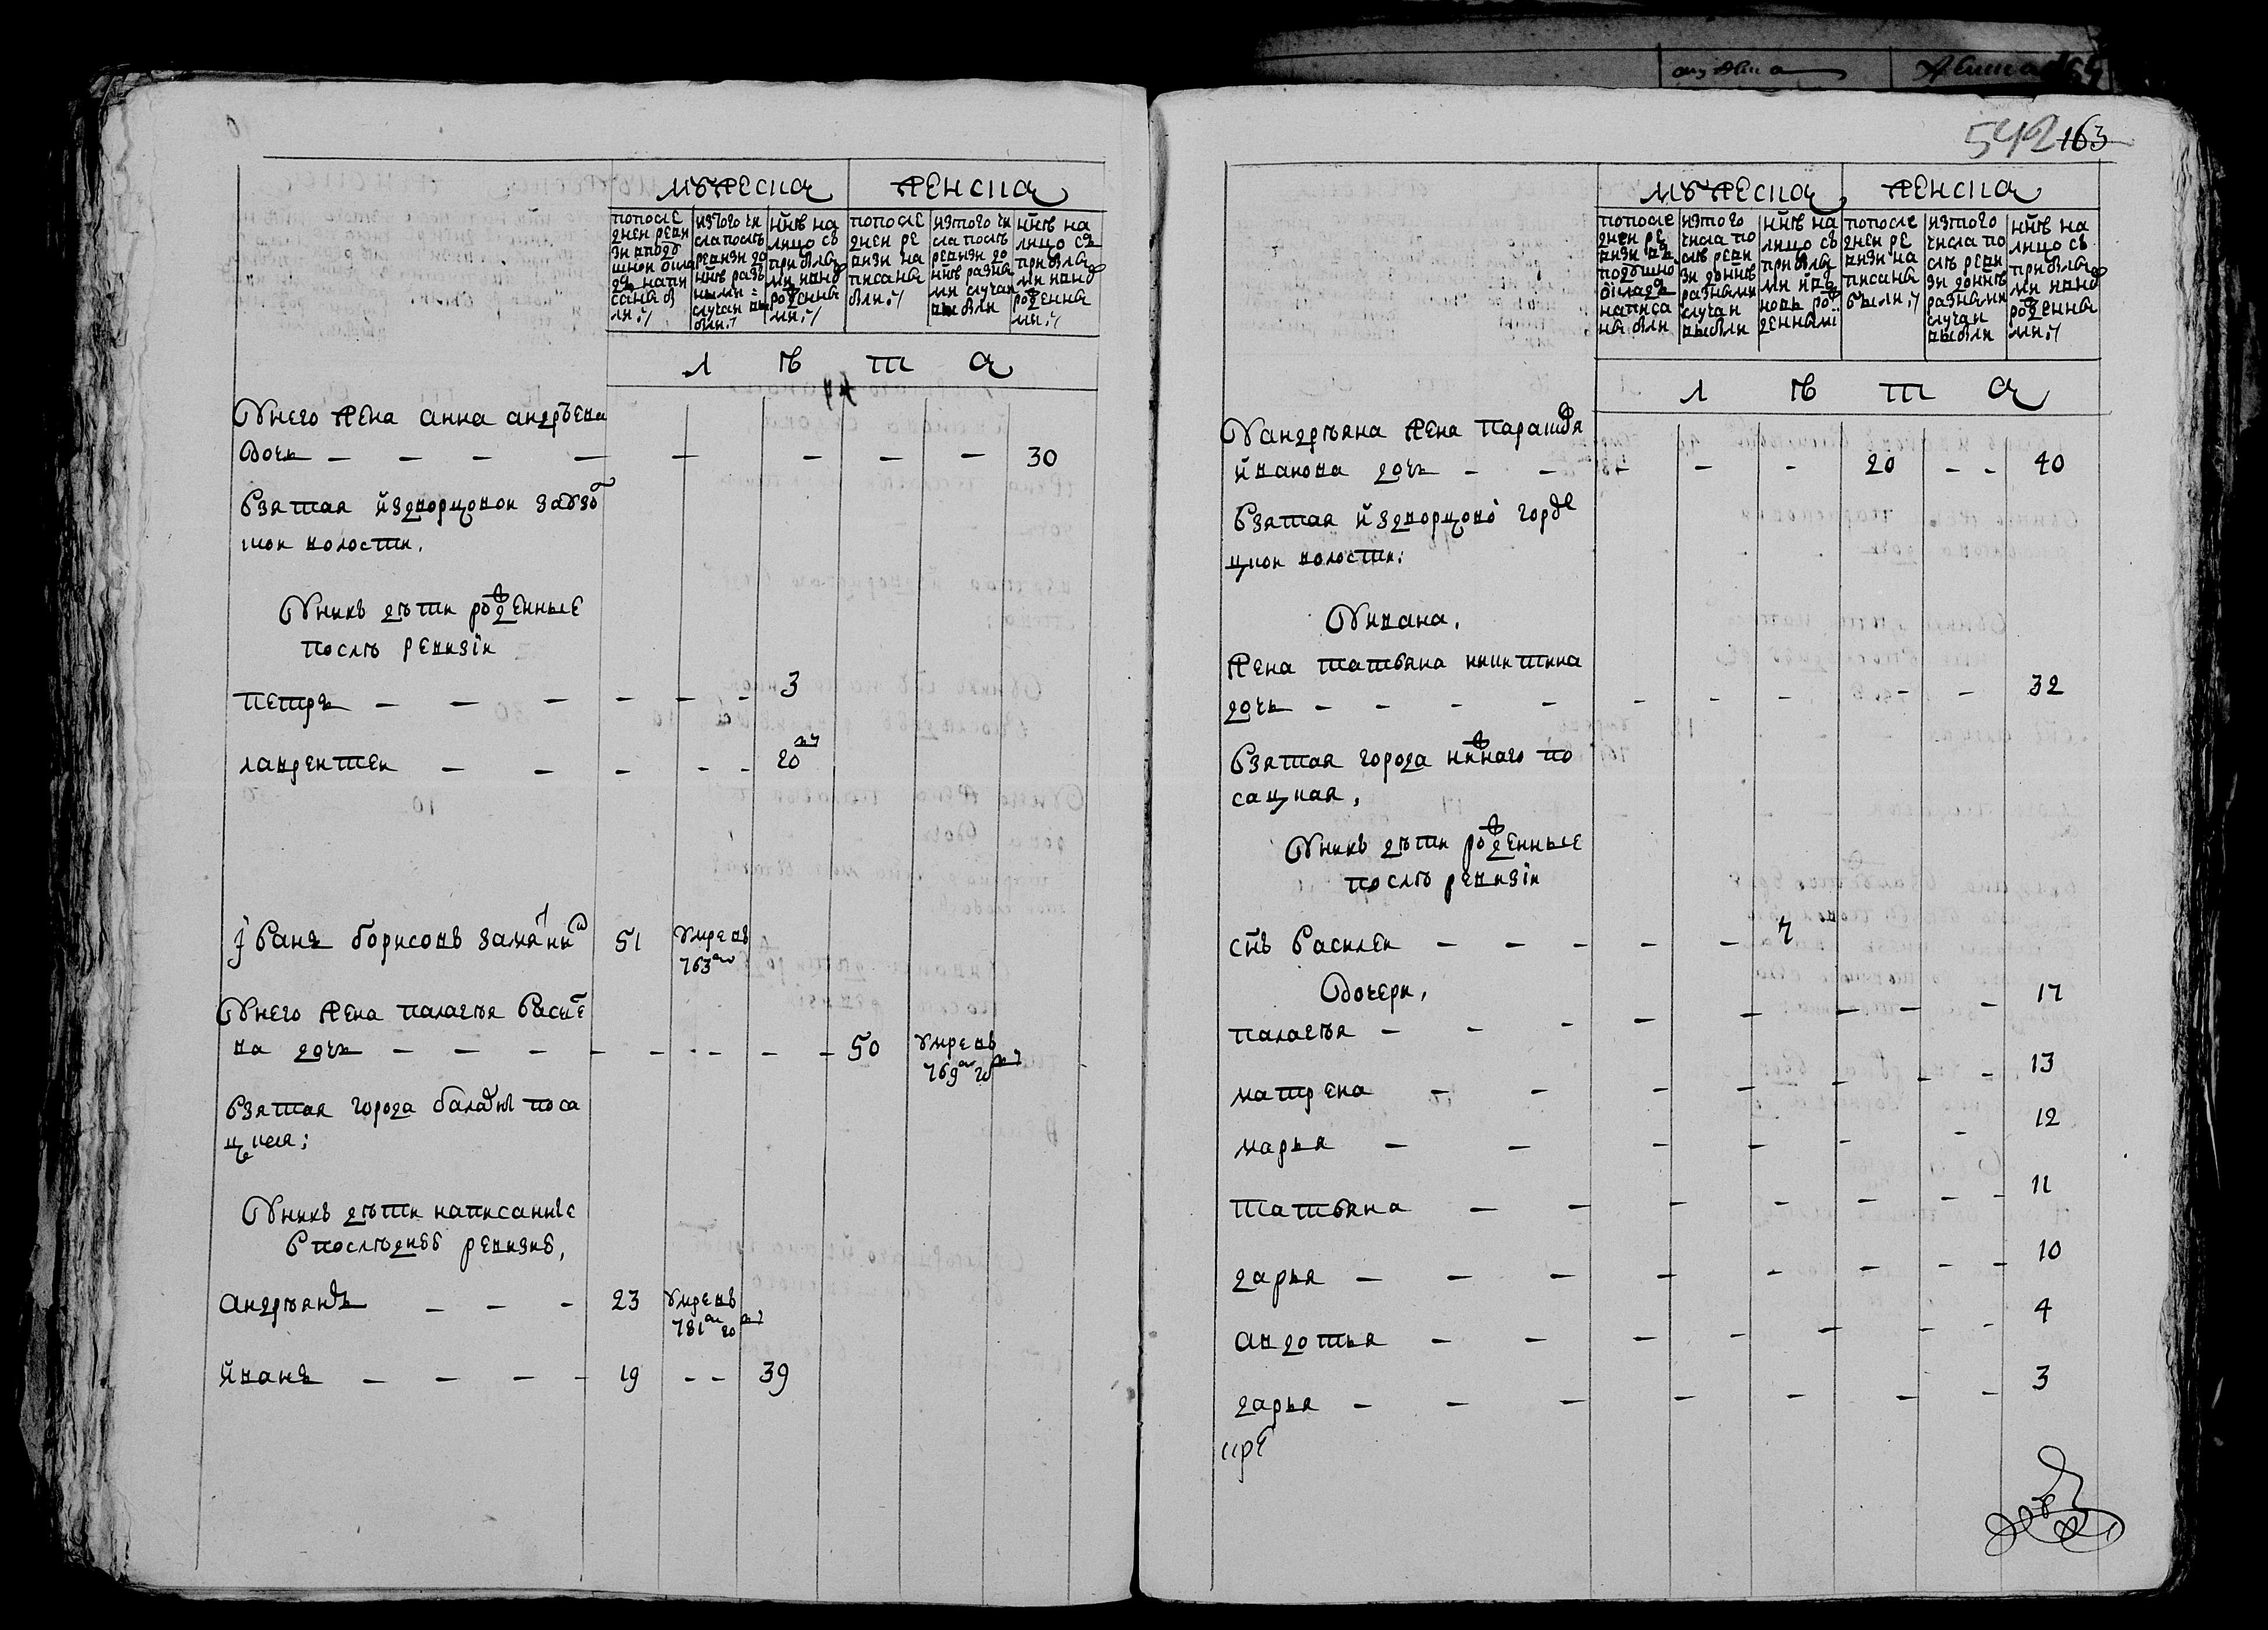 542 163
мужеска
женска
попосле
дней реви
зи вподу
шной окла
дъ напи
саны бы
ли
изтого чи
сла послѣ
ревизи до
ннѣ раз
ными
случаи вы
были
ннѣ на
лицо съ
прибылы
ми и внов
рожденны
ми
попосле
дней ре
визи на
писаны
были
изтого чи
сла послѣ
ревизи до
ннѣ разны
ми случаи
выбыли
ннѣ на
лицо съ
прибылы
ми и внов
рожденны
ми
л ѣ т а
У него жена анна андрѣева
дочь — — — — — — — — 30
взятая из дворцовой заузо
лской волости.
У них дѣти рожденные
послѣ ревизiи
петръ — — — — — — 3
лаврентей — — — — — 20 нд
Иванъ борисовъ 51 умре въ
763 м
У него жена палагѣя василе
ва дочь — — — — — — — — 50 умре въ
769 м го
взятая города балахны поса
цкая;
У нихъ дѣти написанные
в послѣдней ревизие,
андрѣянъ — — — 23 умре въ
781 м го
иванъ — — — — 19 — — 39
мужеска
женска
попосле
дней ре
визи въ
подушно
окладъ
написа
ны были
изтого
числа по
слѣ реви
зи до ннѣ
разными
случаи
выбыли
ннѣ на
лицо съ
прибылы
ми и въ
новь рож
денными
попосле
дней ре
визи на
писаны
были
изтого
числа по
слѣ реви
зи до ннѣ
разными
случаи
выбыли
ннѣ на
лицо съ
прибылы
ми и внов
рожденны
ми
л ѣ т а
У андрѣяна жена парасковя
иванова дочь — — — — — 20 — — 40
взятая из дворцово городе
цкой волости:
У ивана,
жена татьяна никитина
дочь — — — — — — — — — 32
взятая города нижнаго по
сацкая,
У нихъ дѣти рожденные
послѣ ревизiи
снъ василей — — — — — 7
дочери,
палагѣя — — — — — — — — 17
матрена — — — — — — — 13
марья — — — — — — 12
татьяна — — — — — — — 11
дарья — — — — — — — — 10
авдотья — — — — — — — 4
дарья — — — — — — — 3